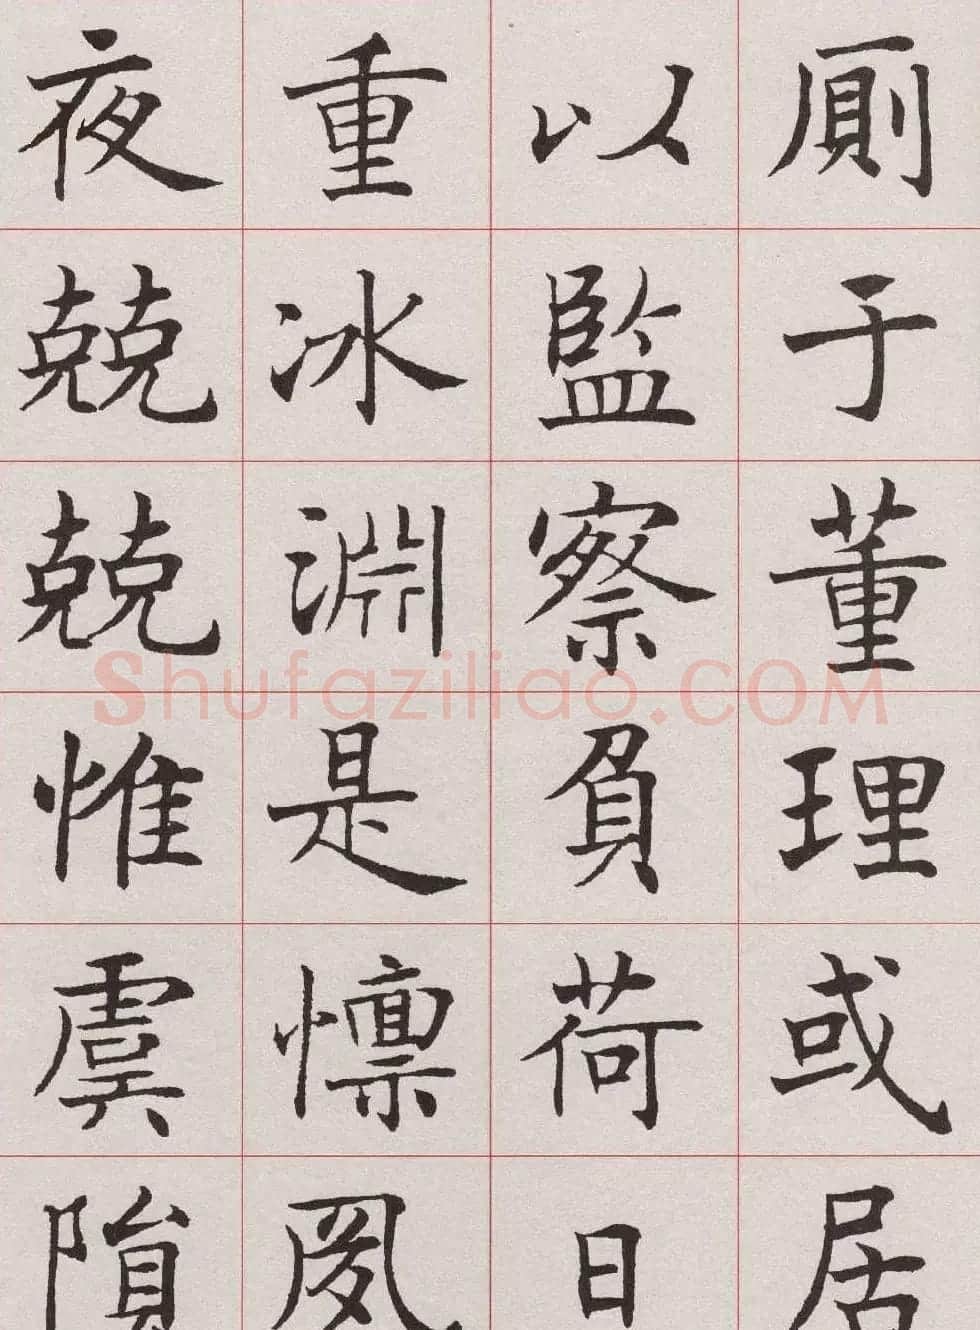 厠于董理或居
以監察負荷日
重冰淵是懍夙
夜兢兢惟虞隕
Shufaziliao.COM